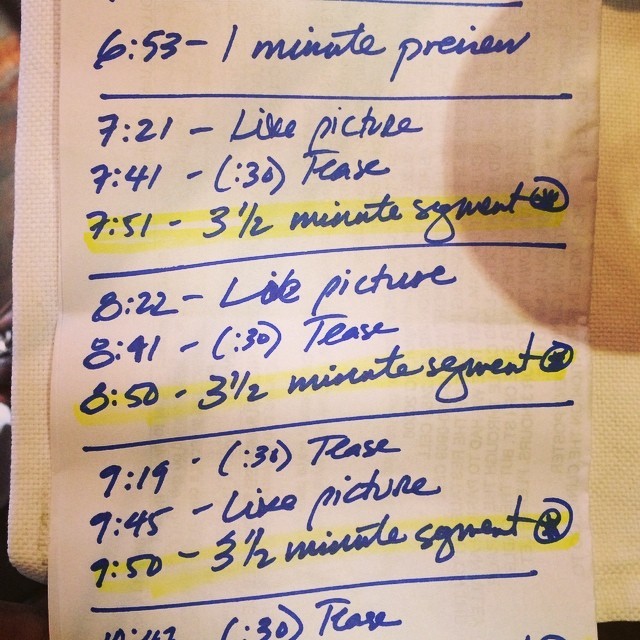 6:53 - 1 minute preview
7:21 - Live picture
7:41 - (:30) Tease
7:51 - 3 1/2 minute segment
8:22 - Live picture
8:41 - (:30) Tease
8:50 - 3 1/2 minute segment
9:19 - (:30) Tease
9:45 - Live picture
9:50 - 3 1/2 minute segment
(:30) Tease